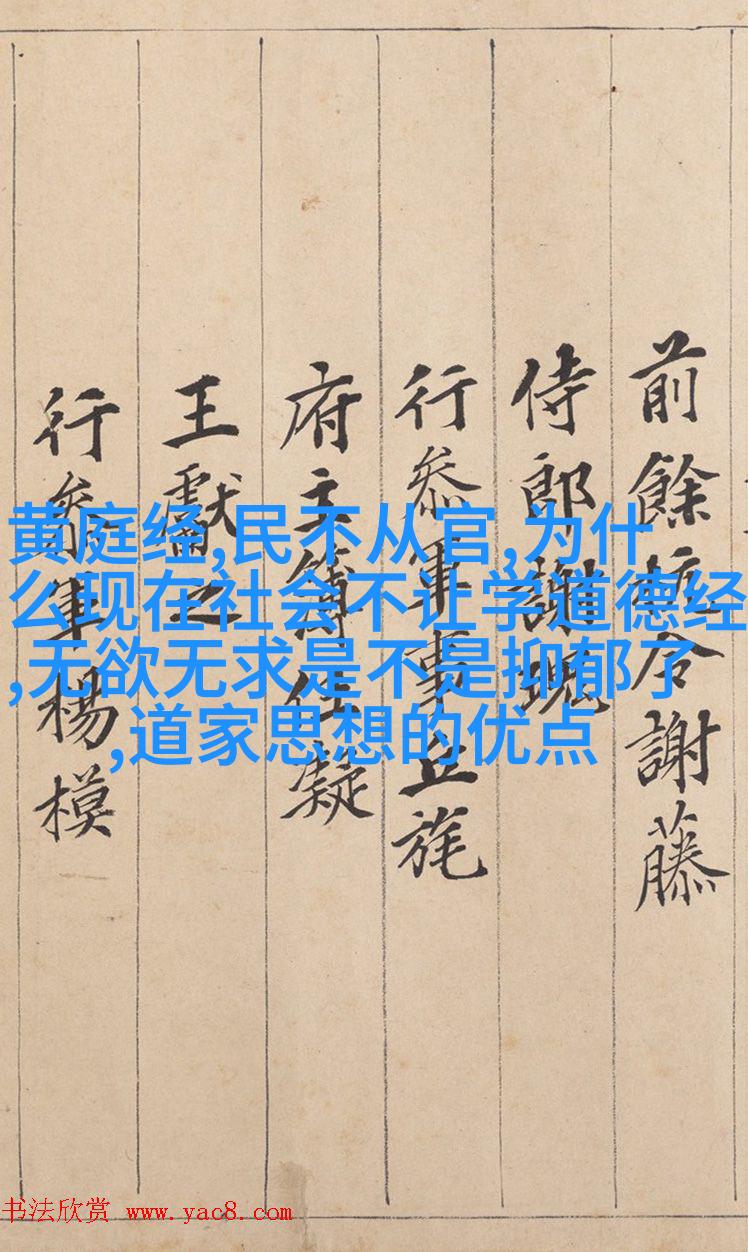 前餘杭令謝藤
侍郎謝瑰
行叅軍事丘旄
府主簿任凝
王獻之
行叅軍楊模
黄庭经,民不从官,为什
么现在社会不让学道德经
,无欲无求是不是抑郁了
,道家思想的优点
书法欣赏 www.yac8.com